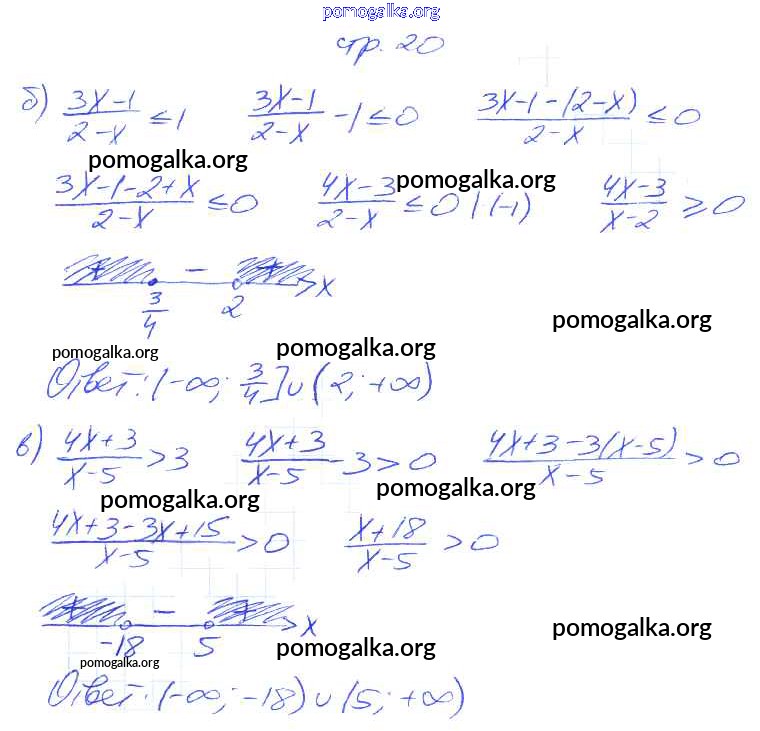 pomogalka.org
стр. 20
б) (3x-1)/(2-x) ≤ 1 (3x-1)/(2-x) - 1 ≤ 0 (3x-1-(2-x))/(2-x) ≤ 0
pomogalka.org
(3x-1-2+x)/(2-x) ≤ 0 (4x-3)/(2-x) ≤ 0 | (-1) (4x-3)/(x-2) ≥ 0
pomogalka.org
+ - + x
3/4 2
pomogalka.org
pomogalka.org pomogalka.org
Ответ: (-∞; 3/4] ∪ (2; +∞)
в) (4x+3)/(x-5) > 3 (4x+3)/(x-5) - 3 > 0 (4x+3-3(x-5))/(x-5) > 0
pomogalka.org pomogalka.org
(4x+3-3x+15)/(x-5) > 0 (x+18)/(x-5) > 0
+ - + x
-18 5
pomogalka.org pomogalka.org
pomogalka.org
Ответ: (-∞; -18) ∪ (5; +∞)